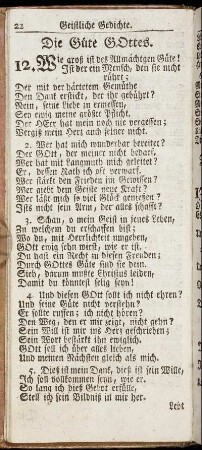 22 Geistliche Gedichte.
Die Güte GOttes.
12. Wie groß ist des Allmächtgen Güte!
Ist der ein Mensch, den sie nicht
rührt;
Der mit verhärtetem Gemüthe
Den Dank erstickt, der ihr gebührt?
Nein, seine Liebe zu ermessen,
Sey ewig meine größte Pflicht.
Der HErr hat mein noch nie vergessen;
Vergiß mein Herz auch seiner nicht.
2. Wer hat mich wunderbar bereitet?
Der GOtt, der meiner nicht bedarf.
Wer hat mit Langmuth mich geleitet?
Er, dessen Rath ich oft verwarf.
Wer stärkt den Frieden im Gewissen?
Wer giebt dem Geiste neue Kraft?
Wer läßt mich so viel Glück geniessen?
Ists nicht sein Arm, der alles schafft?
3. Schau, o mein Geist in jenes Leben,
Zu welchem du erschaffen bist;
Wo du, mit Herrlichkeit umgeben,
GOtt ewig sehn wirst, wie er ist.
Du hast ein Recht zu diesen Freuden;
Durch GOttes Güte sind sie dein.
Sieh, darum mußte Christus leiden,
Damit du könntest selig seyn!
4. Und diesen GOtt sollt ich nicht ehren?
Und seine Güte nicht verstehn?
Er sollte ruffen; ich nicht hören?
Den Weg, den er mir zeigt, nicht gehn?
Sein Will ist mir ins Herz geschrieben;
Sein Wort bestärkt ihn ewiglich.
GOtt soll ich über alles lieben,
Und meinen Nächsten gleich als mich.
5. Dieß ist mein Dank, dieß ist sein Wille,
Ich soll vollkommen seyn, wie er.
So lang ich dieß Gebot erfülle,
Stell ich sein Bildniß in mir her.
Lebt